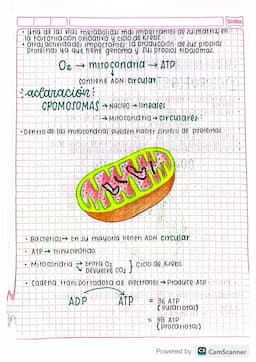 • Una de las vías metabólicas más importantes de su matriz en
la fosforilación oxidativa y ciclo de Krebs.
• Otras actividades importantes: la producción de sus propias
proteínas ya que tiene genoma y sus propios ribosomas.
O₂ → mitocondria → ATP
contiene ADN circular
aclaración:
CROMOSOMAS → Núcleo → lineales
→ Mitocondria → circulares
• Dentro de las mitocondrias pueden haber síntesis de proteínas.
• Bacterias → en su mayoría tienen ADN circular
• ATP → trinucleótido
• Mitocondria → Entra O₂
Devuelve CO₂
Ciclo de Krebs
• Cadena transportadora de electrones → Produce ATP
ADP ATP = 36 ATP
(eucariotas)
= 38 ATP
(procariotas)
Scribe
Powered by CS CamScanner